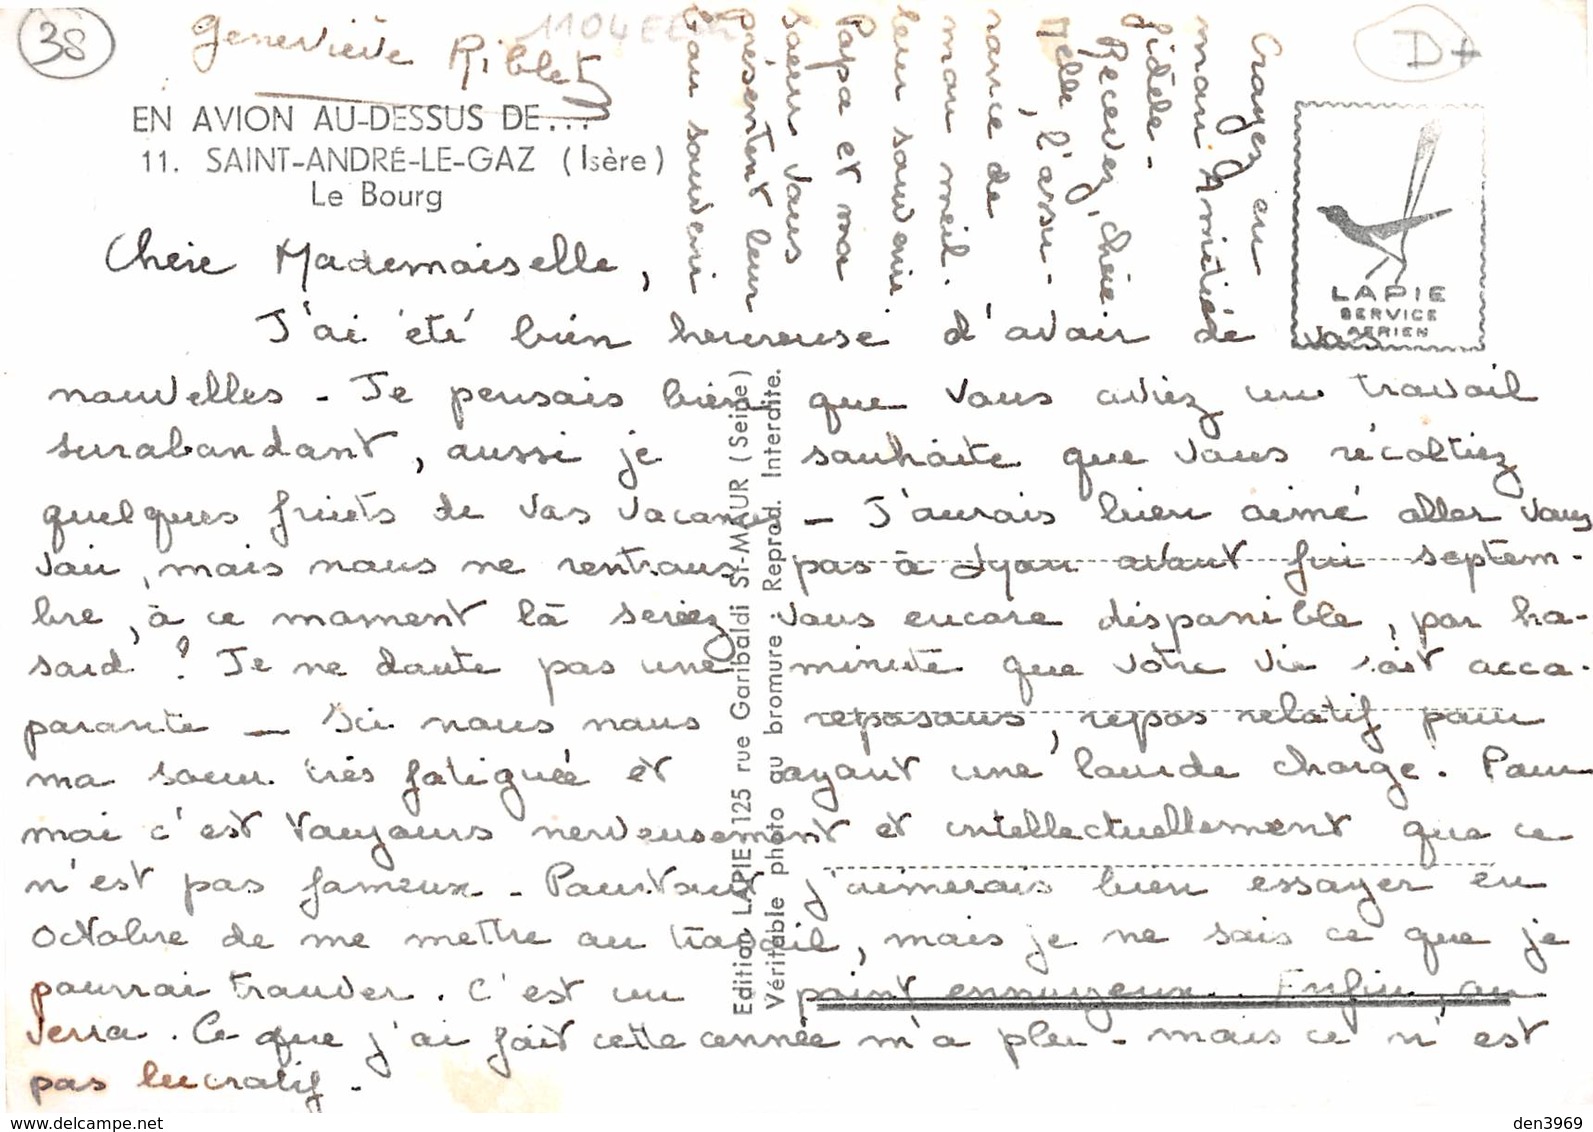 38
Geneviève Riblet
1104
D+
EN AVION AU-DESSUS DE...
11. SAINT-ANDRÉ-LE-GAZ (Isère)
Le Bourg
LAPIE
SERVICE
AERIEN
Chère Mademoiselle,
J'ai été bien heureuse d'avoir de vos
nouvelles - Je pensais bien que vous aviez un travail
surabondant, aussi je souhaite que vous récoltiez
quelques fruits de vos vacances - J'aurais bien aimé aller vous
voir, mais nous ne rentrons pas à Lyon avant fin septem-
bre, à ce moment là seriez-vous encore disponible, par ha-
sard ? Je ne doute pas une minute que votre vie soit acca-
parante - Ici nous nous reposons, repos relatif pour
ma soeur très fatiguée et ayant une lourde charge. Pour
moi c'est toujours nerveusement et intellectuellement que ce
n'est pas fameux - Pourtant j'aimerais bien essayer en
Octobre de me mettre au travail, mais je ne sais ce que je
pourrai trouver. C'est un point ennuyeux. Enfin, on
verra. Ce que j'ai fait cette année m'a plu - mais ce n'est
pas lucratif -
Croyez en
mon Amitié
fidèle -
Recevez, chère
Melle, l'assu-
rance de
mon meil.
leur souvenir
Papa et ma
soeur vous
présentent leur
bon souvenir
Edition LAPIE, 125 rue Garibaldi St-MAUR (Seine)
Véritable photo au bromure - Reprod. Interdite.
www.delcampe.net
den3969